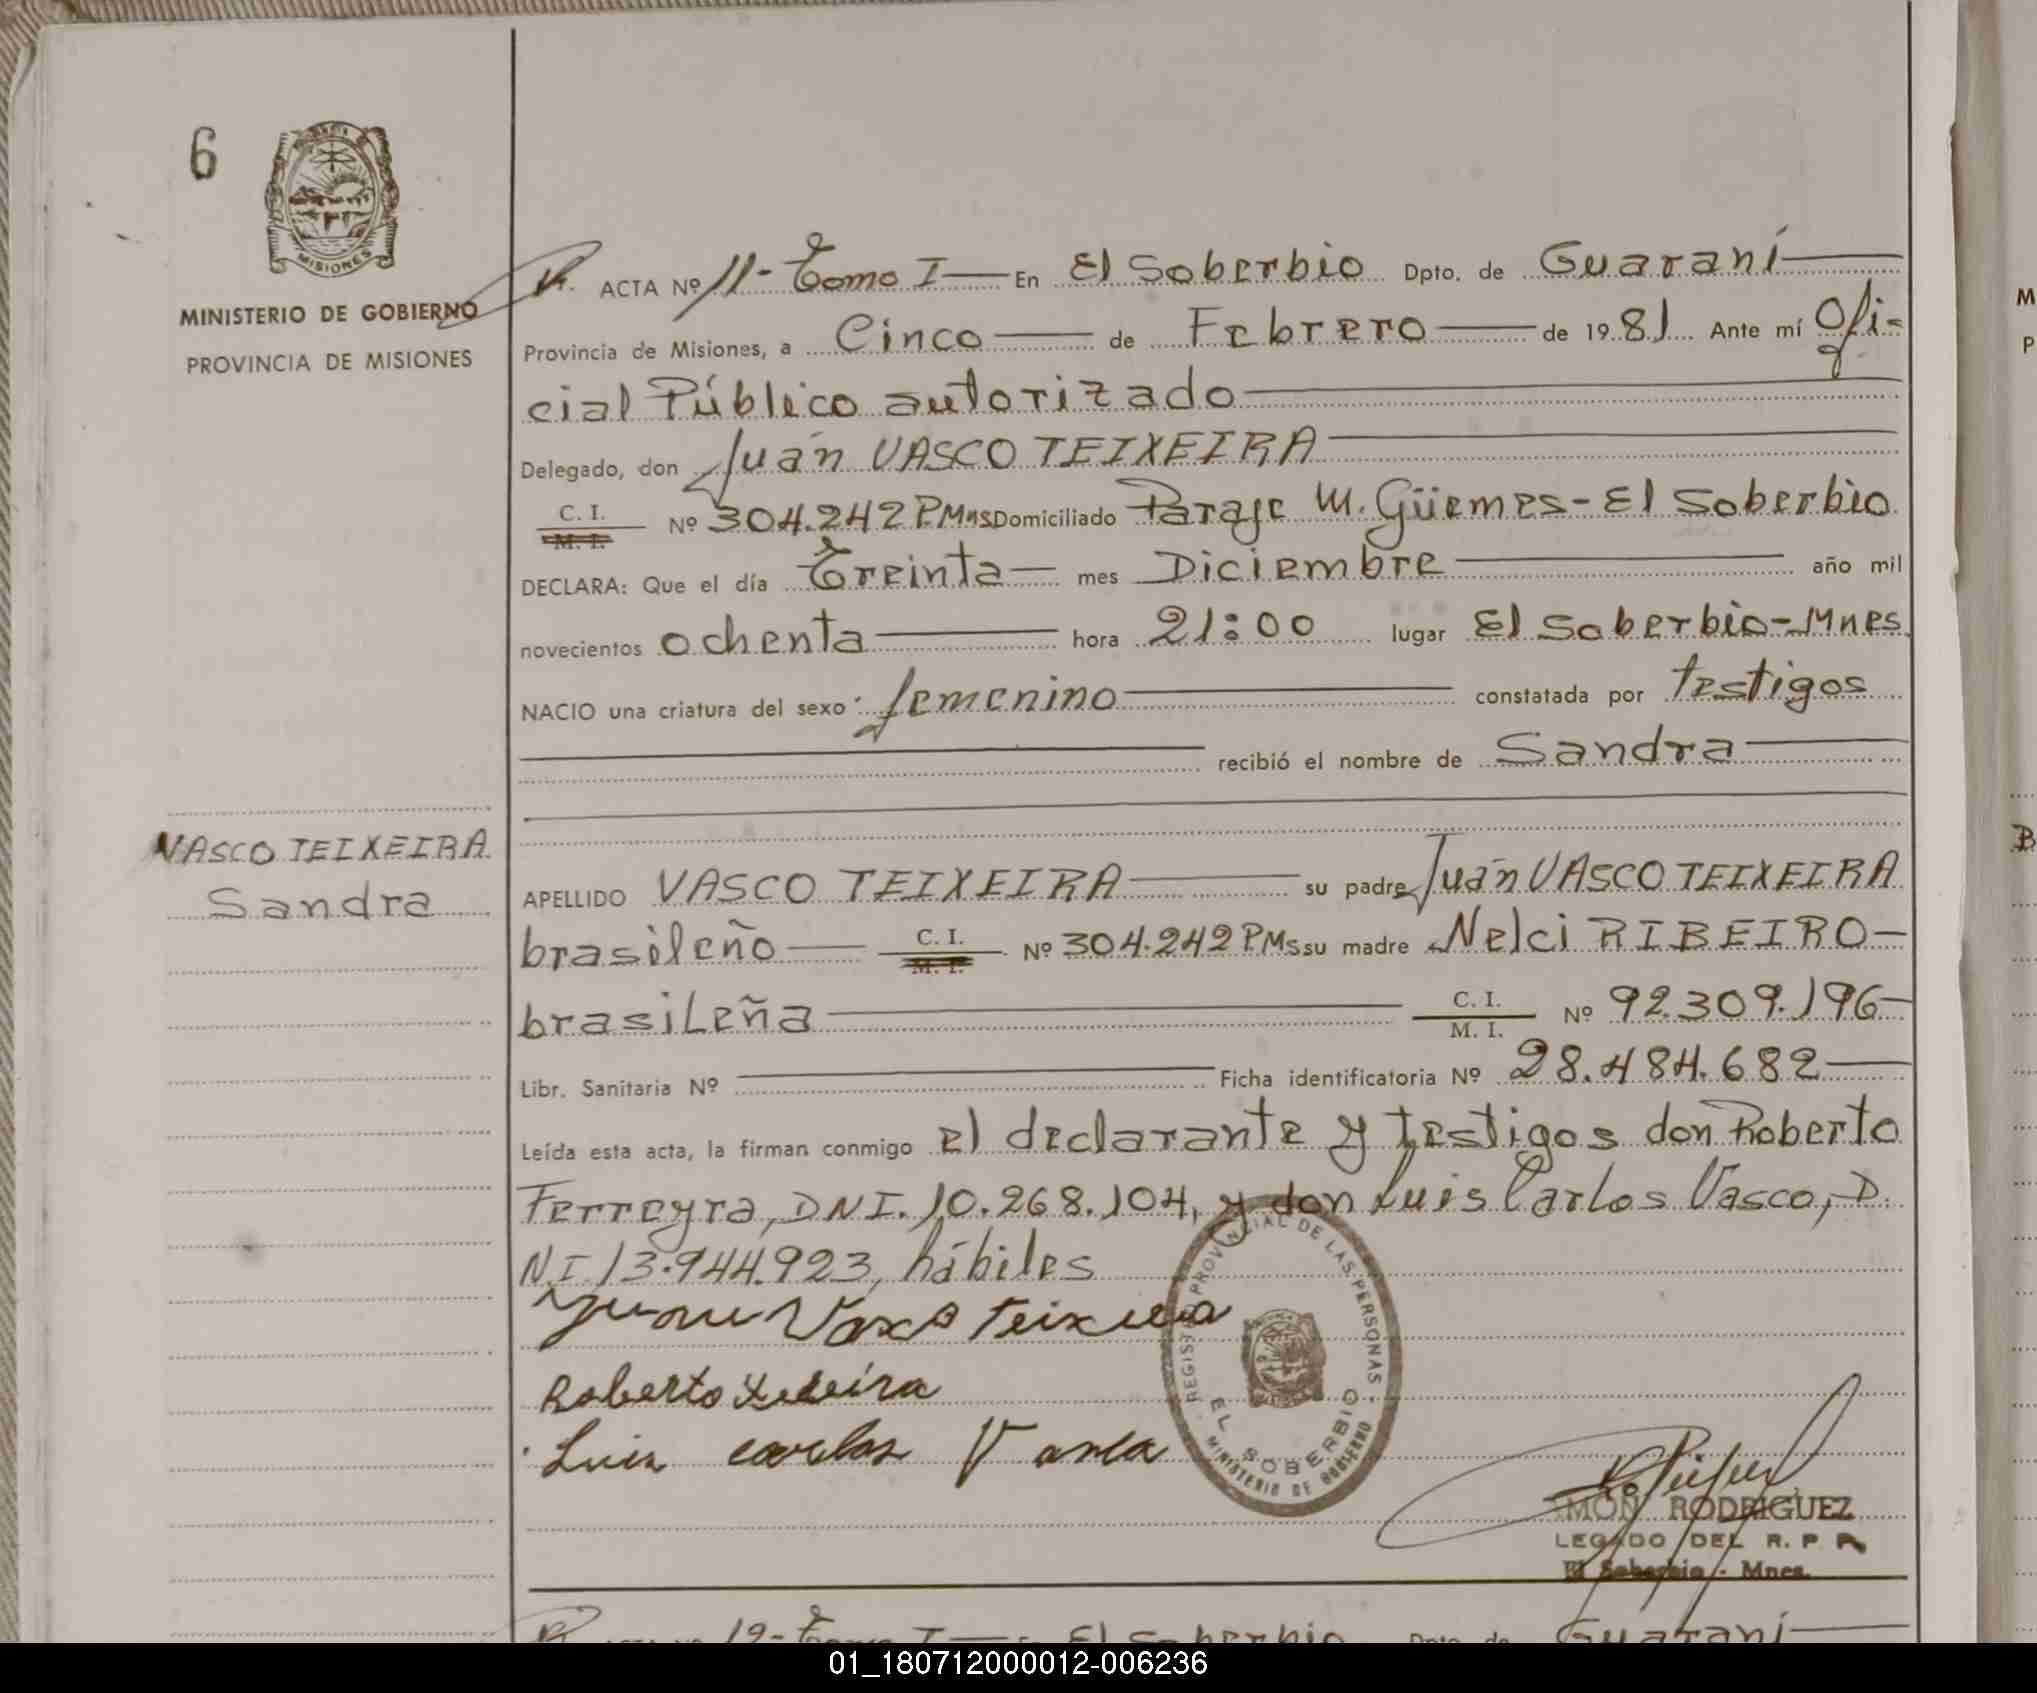 6
MISIONES
MINISTERIO DE GOBIERNO
PROVINCIA DE MISIONES
VASCO TEIXEIRA
Sandra
ACTA Nº 11- Tomo I En El Soberbio Dpto. de Guaraní
Provincia de Misiones, a Cinco de Febrero de 1981 Ante mí Ofi-
cial Público autorizado
Delegado, don Juan VASCO TEIXEIRA
C. I. M. I. Nº 304.242 P.Mns Domiciliado Paraje M. Güemes - El Soberbio
DECLARA: Que el día Treinta mes Diciembre año mil
novecientos ochenta hora 21:00 lugar El Soberbio-Mnes
NACIO una criatura del sexo femenino constatada por testigos
recibió el nombre de Sandra
APELLIDO VASCO TEIXEIRA su padre Juan VASCO TEIXEIRA
brasileño C. I. M. I. Nº 304.242 P.Ms su madre Nelci RIBEIRO
brasileña C. I. M. I. Nº 92.309.196
Libr. Sanitaria Nº Ficha identificatoria Nº 28.484.682
Leída esta acta, la firman conmigo el declarante y testigos don Roberto
Ferreyra, DNI. 10.268.104, y don Luis Carlos Vasco, D.
N.I 13.944.923, hábiles
Vasco Teixeira
Roberto
Luis Carlos
REGISTRO PROVINCIAL DE LAS PERSONAS
EL SOBERBIO
MINISTERIO DE GOBIERNO
MON RODRIGUEZ
LEGADO DEL R. P. P.
El Soberbio - Mnes.
12- Tomo I El Soberbio Guaraní
01_180712000012-006236